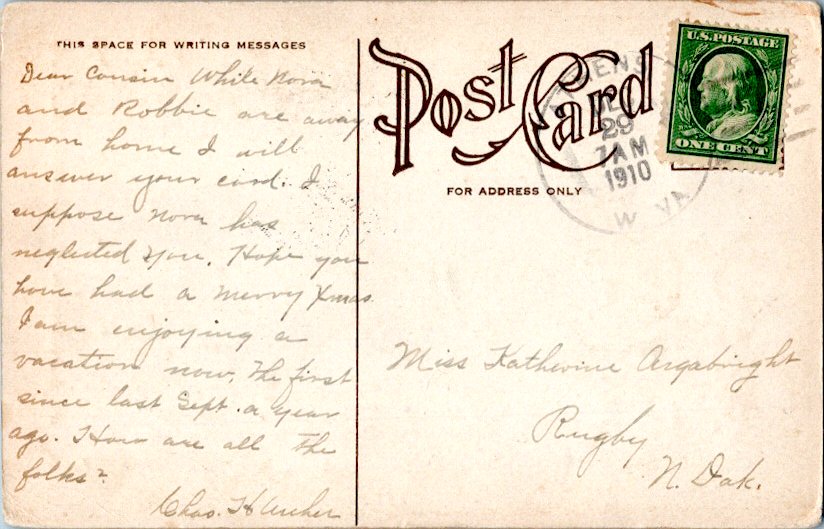 THIS SPACE FOR WRITING MESSAGES
Dear Cousin While Nora
and Robbie are away
from home I will
answer your card. I
suppose Nora has
neglected you. Hope you
have had a merry Xmas
I am enjoying a
vacation now. The first
since last Sept. a year
ago. How are all the
folks?
Chas. H
Post Card
FOR ADDRESS ONLY
U.S. POSTAGE
ONE CENT
29
7 AM
1910
W. VA.
Miss Katherine Argabright
Rugby
N. Dak.